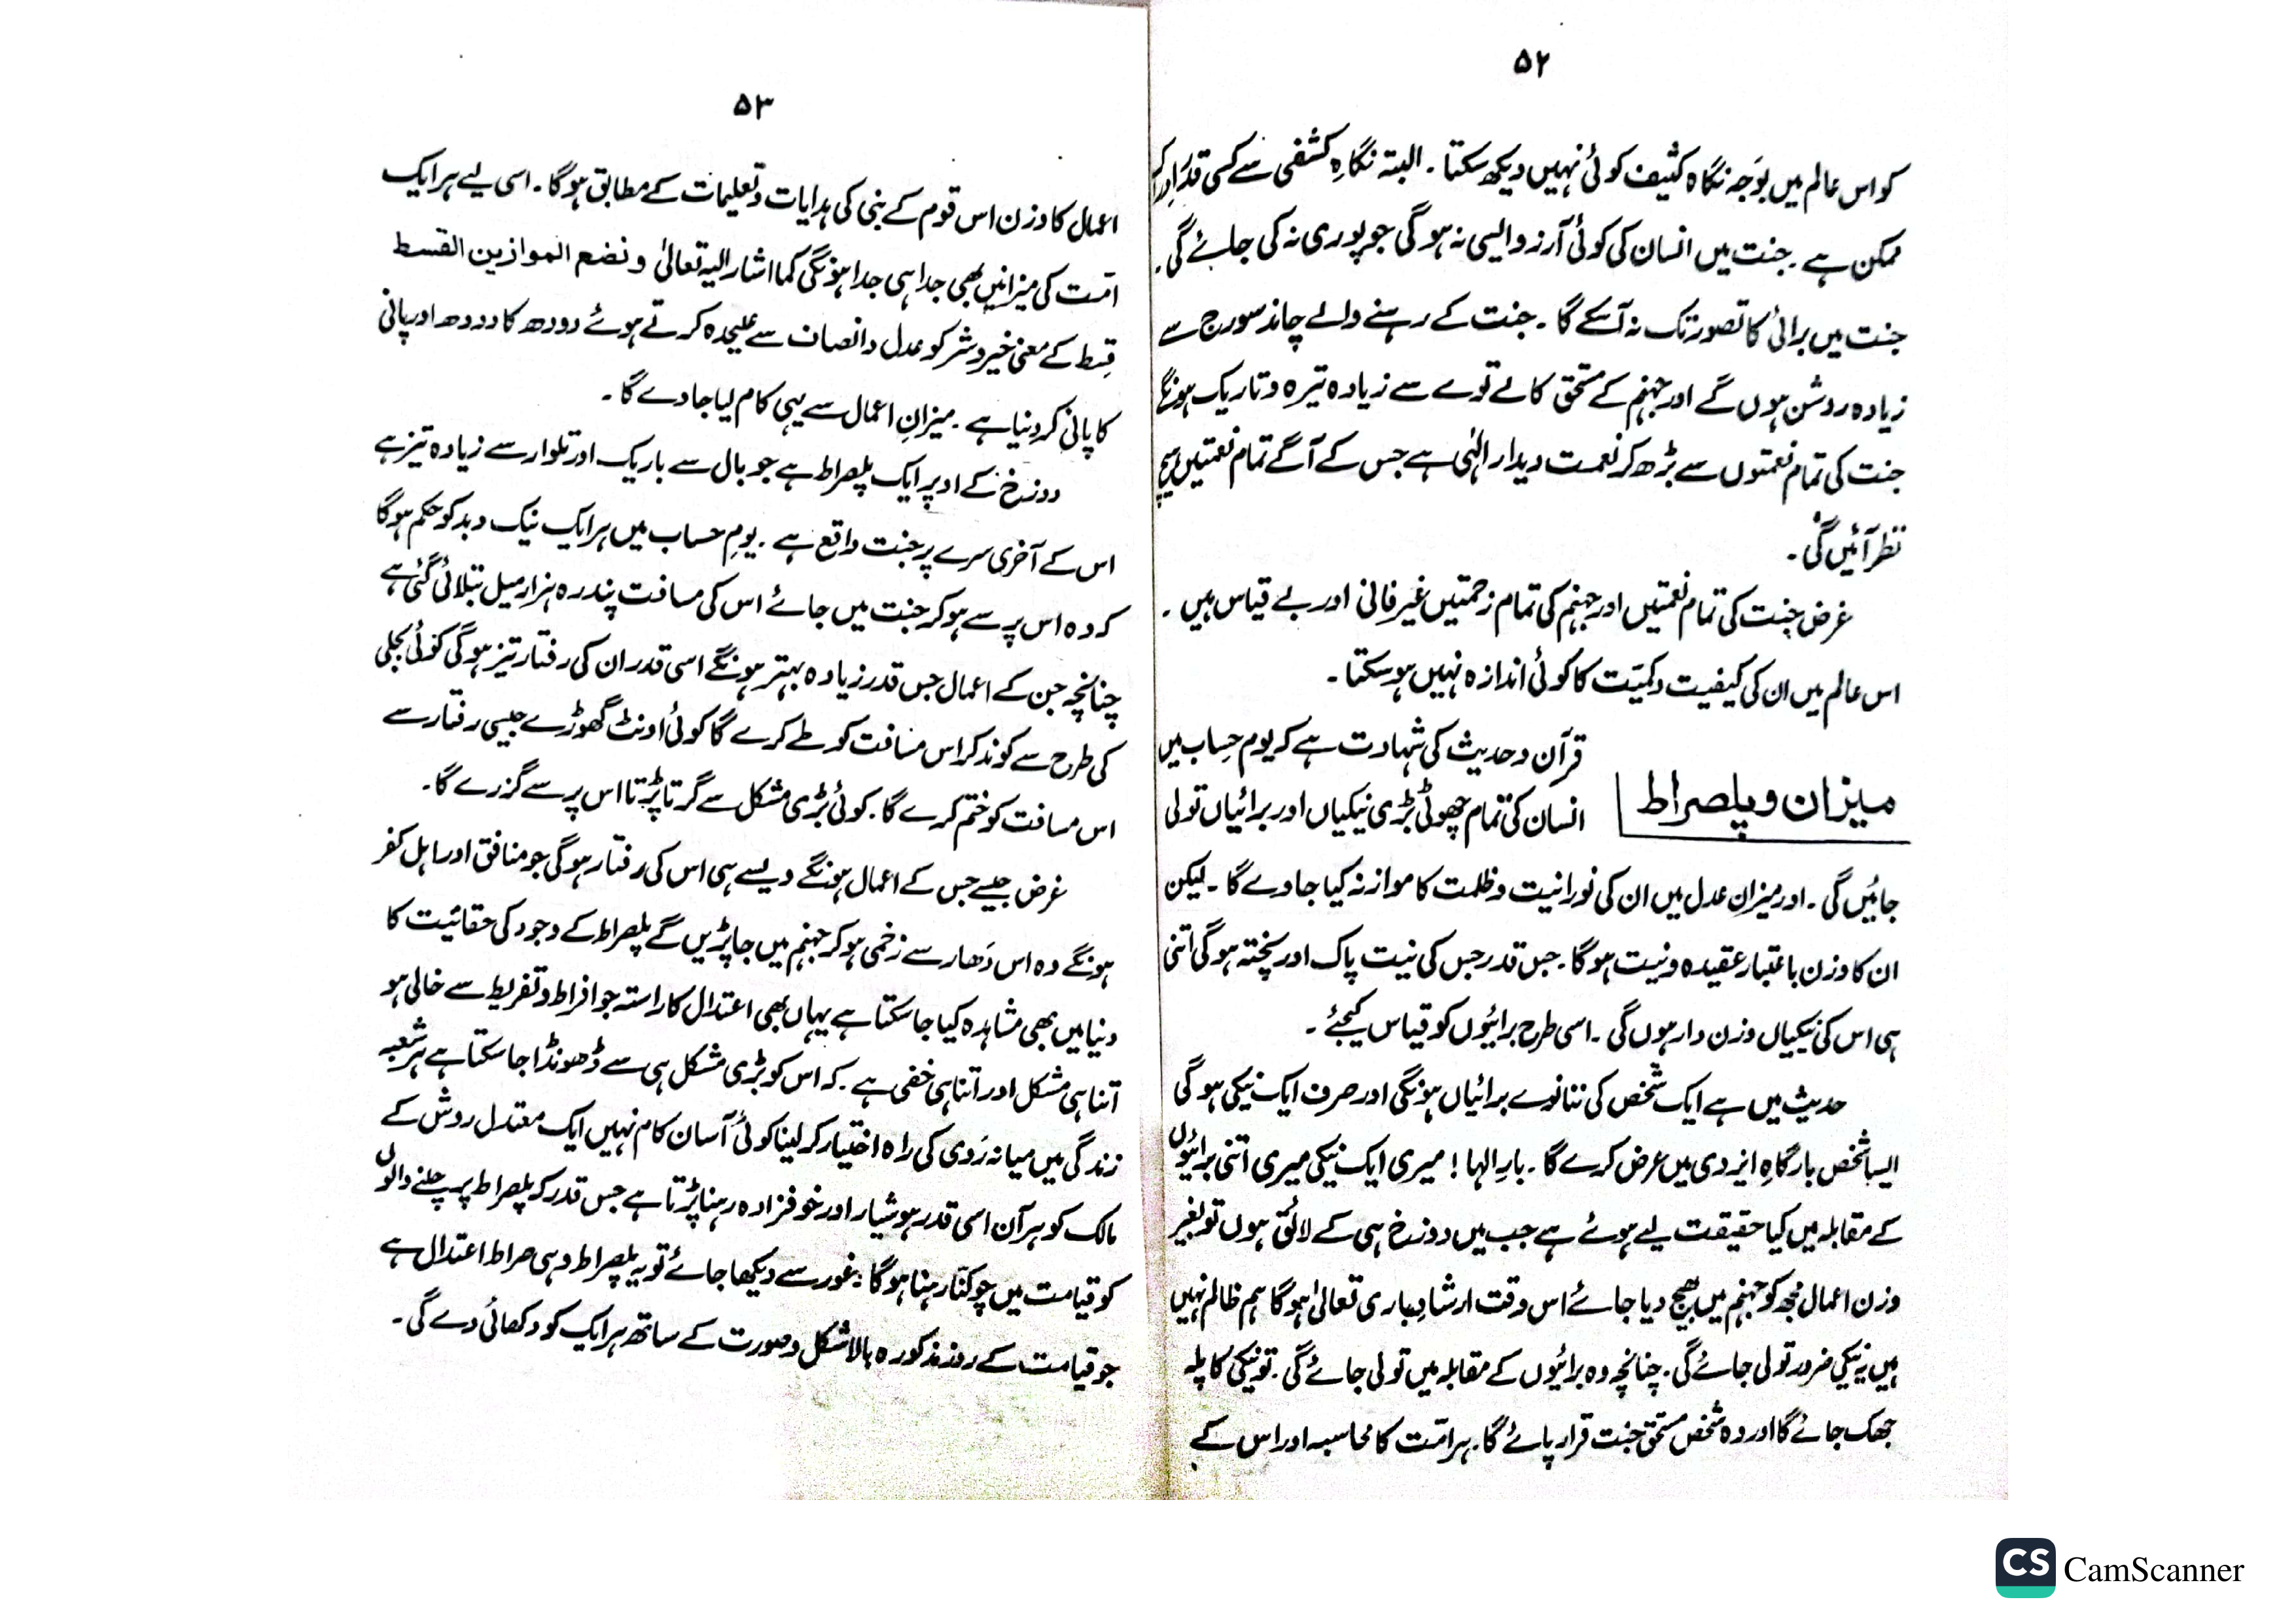 ۵۲
کو اس عالم میں بوَجہ نگاہ کثیف کوئی نہیں دیکھ سکتا ۔ البتہ نگاہِ کشفی سے کسی قدر ادراک
ممکن ہے ۔ جنت میں انسان کی کوئی آرزو ایسی نہ ہو گی جو پوری نہ کی جائے گی ۔
جنت میں برائی کا تصور تک نہ آسکے گا ۔ جنت کے رہنے والے چاند سورج سے
زیادہ روشن ہوں گے اور جہنم کے مستحق کالے توے سے زیادہ تیرہ و تاریک ہونگے
جنت کی تمام نعمتوں سے بڑھ کر نعمت دیدار الٰہی ہے جس کے آگے تمام نعمتیں ہیچ
نظر آئیں گی ۔
غرض جنت کی تمام نعمتیں اور جہنم کی تمام زحمتیں غیر فانی اور بے قیاس ہیں ۔
اس عالم میں ان کی کیفیت و کمیّت کا کوئی اندازہ نہیں ہو سکتا ۔
میزان و پلصراط
قرآن و حدیث کی شہادت ہے کہ یوم حساب میں
انسان کی تمام چھوٹی بڑی نیکیاں اور برائیاں تولی
جائیں گی ۔ اور میزانِ عدل میں ان کی نورانیت و ظلمت کا موازنہ کیا جاوے گا ۔ لیکن
ان کا وزن باعتبار عقیدہ و نیت ہو گا ۔ جس قدر جس کی نیت پاک اور پختہ ہو گی اتنی
ہی اس کی نیکیاں وزن دار ہوں گی ۔ اسی طرح برائیوں کو قیاس کیجئے ۔
حدیث میں ہے ایک شخص کی ننانوے برائیاں ہونگی اور صرف ایک نیکی ہو گی
ایسا شخص بارگاہِ ایزدی میں عرض کرے گا ۔ بارِ الہا ! میری ایک نیکی میری اتنی برائیوں
کے مقابلہ میں کیا حقیقت لیے ہوئے ہے جب میں دوزخ ہی کے لائق ہوں تو بغیر
وزن اعمال مجھ کو جہنم میں بھیج دیا جائے اس وقت ارشاد باری تعالیٰ ہو گا ہم ظالم نہیں
ہیں یہ نیکی ضرور تولی جائے گی ۔ چنانچہ وہ برائیوں کے مقابلہ میں تولی جائے گی ۔ تو نیکی کا پلہ
جھک جائے گا اور وہ شخص مستحق جنت قرار پائے گا ۔ ہر امّت کا محاسبہ اور اس کے
۵۳
اعمال کا وزن اس قوم کے نبی کی ہدایات و تعلیمات کے مطابق ہو گا ۔ اسی لیے ہر ایک
امّت کی میزانیں بھی جدا ہی جدا ہونگی کما اشار الیہ تعالیٰ و نضع الموازین القسط
قِسط کے معنی خیر و شر کو عدل و انصاف سے علیحدہ کرتے ہوئے دودھ کا دودھ اور پانی
کا پانی کر دینا ہے ۔ میزانِ اعمال سے یہی کام لیا جاوے گا ۔
دوزخ کے اوپر ایک پلصراط ہے جو بال سے باریک اور تلوار سے زیادہ تیز ہے
اس کے آخری سرے پر جنت واقع ہے ۔ یومِ حساب میں ہر ایک نیک و بد کو حکم ہو گا
کہ وہ اس پر سے ہو کر جنت میں جائے اس کی مسافت پندرہ ہزار میل بتلائی گئی ہے
چنانچہ جن کے اعمال جس قدر زیادہ بہتر ہونگے اسی قدر ان کی رفتار تیز ہو گی کوئی بجلی
کی طرح سے کوند کر اس مسافت کو طے کرے گا کوئی اونٹ گھوڑے جیسی رفتار سے
اس مسافت کو ختم کرے گا ۔ کوئی بڑی مشکل سے گرتا پڑتا اس پر سے گزرے گا ۔
غرض جیسے جس کے اعمال ہونگے ویسے ہی اس کی رفتار ہو گی جو منافق اور اہل کفر
ہونگے وہ اس دَھار سے زخمی ہو کر جہنم میں جا پڑیں گے پلصراط کے وجود کی حقانیت کا
دنیا میں بھی مشاہدہ کیا جا سکتا ہے یہاں بھی اعتدال کا راستہ جو افراط و تفریط سے خالی ہو
اتنا ہی مشکل اور اتنا ہی خفی ہے ۔ کہ اس کو بڑی مشکل ہی سے ڈھونڈا جا سکتا ہے ہر شعبہ
زندگی میں میانہ رَوی کی راہ اختیار کر لینا کوئی آسان کام نہیں ایک معتدل روش کے
مالک کو ہر آن اسی قدر ہوشیار اور خوفزادہ رہنا پڑتا ہے جس قدر کہ پلصراط پر چلنے والوں
کو قیامت میں چوکنّا رہنا ہو گا ۔ غور سے دیکھا جائے تو یہ پلصراط وہی صراط اعتدال ہے
جو قیامت کے روز مذکورہ بالا شکل و صورت کے ساتھ ہر ایک کو دکھائی دے گی ۔
CS CamScanner